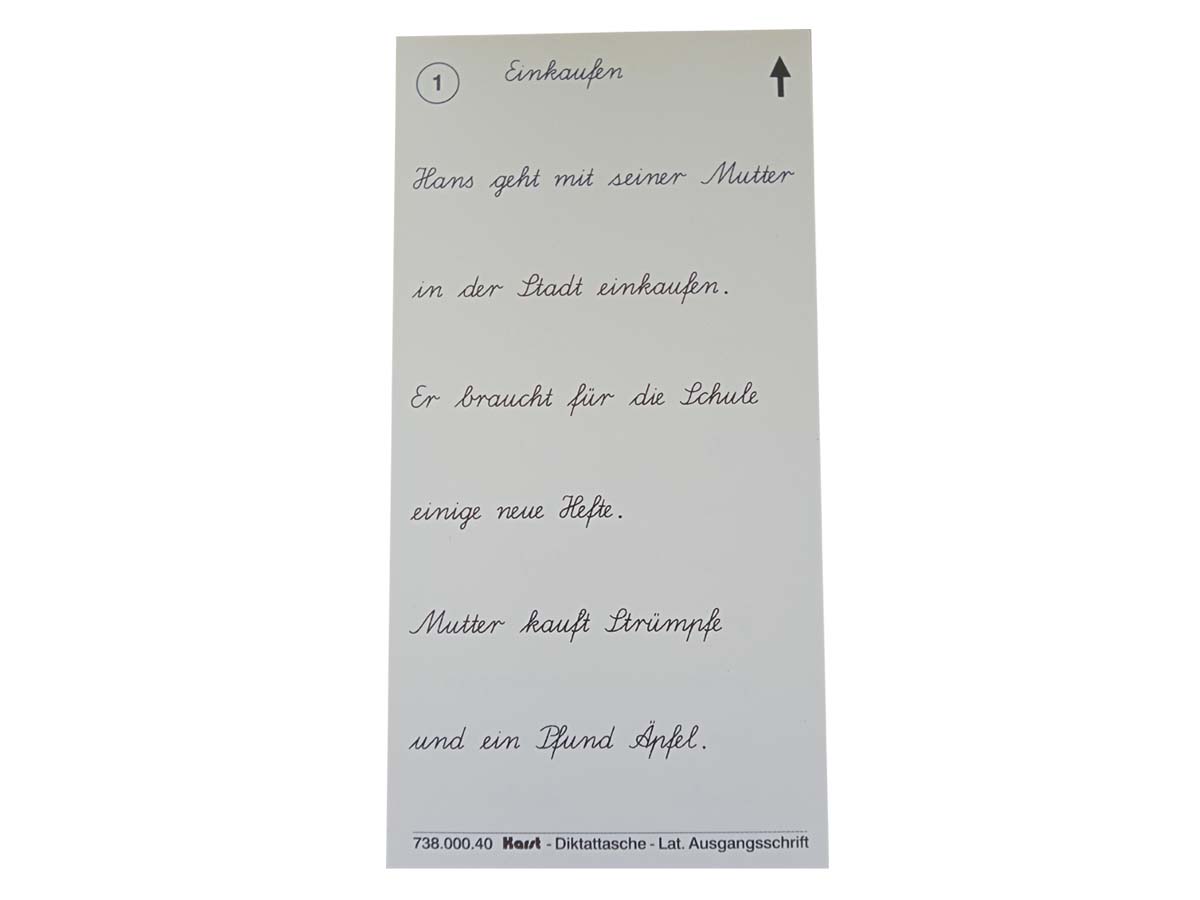 1 Einkaufen
Hans geht mit seiner Mutter
in der Stadt einkaufen.
Er braucht für die Schule
einige neue Hefte.
Mutter kauft Strümpfe
und ein Pfund Äpfel.
738.000.40 Karst - Diktattasche - Lat. Ausgangsschrift